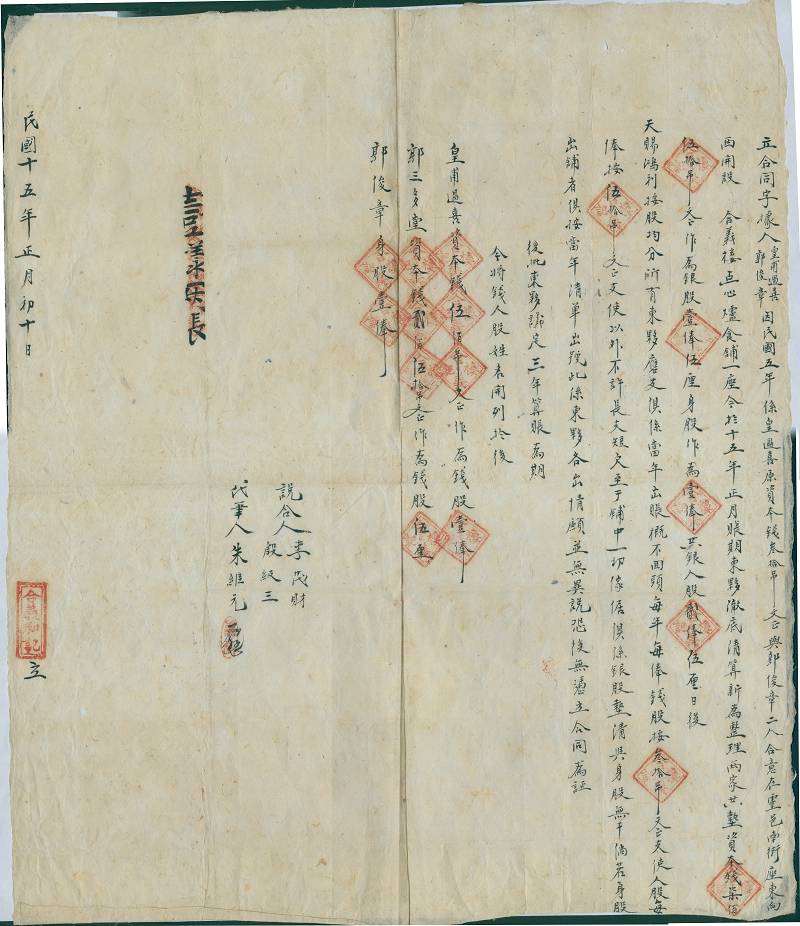 立合同字據人皇甫過喜郭俊章因民國五年係皇過喜原資本錢叁拾吊文正與郭俊章二人合意在靈邑南街座東向
西開設合義樓点心爐食鋪一座今於十五年正月賬期東夥澈底清算新為整理両家共墊資本錢柒佰
伍拾吊文正作為銀股壹俸伍厘身股作為壹俸共銀人股貳俸伍厘日後
天賜鴻利按股均分所有東夥應支俱係當年出賬概不回頭每年每俸錢股按叁拾吊文正支使人股每
俸按伍拾吊文正支使以外不許長支短欠至于鋪中一切傢俱係銀股墊清與身股無干倘若身股
出鋪者俱按當年清單出號此係東夥各出情願並無異說恐後無憑立合同為証
後批東夥議定三年算賬為期
今將錢人股姓名開列於後
皇甫過喜資本錢伍佰吊文正作為錢股壹俸
郭三多堂資本錢貳佰伍拾吊文正作為錢股伍厘
郭俊章身股壹俸
說合人李茂財
殷級三
代筆人朱維元
民國十五年正月初十日
合義和記
立